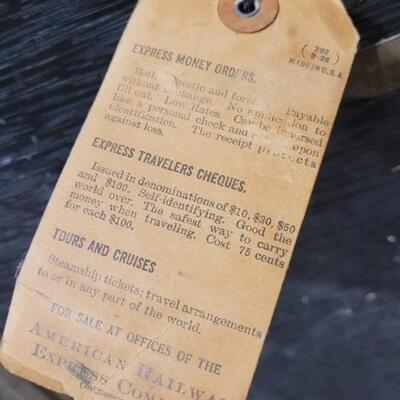 ( 202 )
9-28
MADE IN U. S. A.
EXPRESS MONEY ORDERS.
Both domestic and foreign. Payable
without exchange. No application to
fill out. Low Rates. Can be
like a personal check and upon
identification. The receipt protects
against loss.
EXPRESS TRAVELERS CHEQUES.
Issued in denominations of $10, $20, $50
and $100. Self-identifying. Good the
world over. The safest way to carry
money when traveling. Cost 75 cents
for each $100.
TOURS AND CRUISES
Steamship tickets; travel arrangements
to or in any part of the world.
FOR SALE AT OFFICES OF THE
AMERICAN RAILWAY
EXPRESS COM
(INCORPO